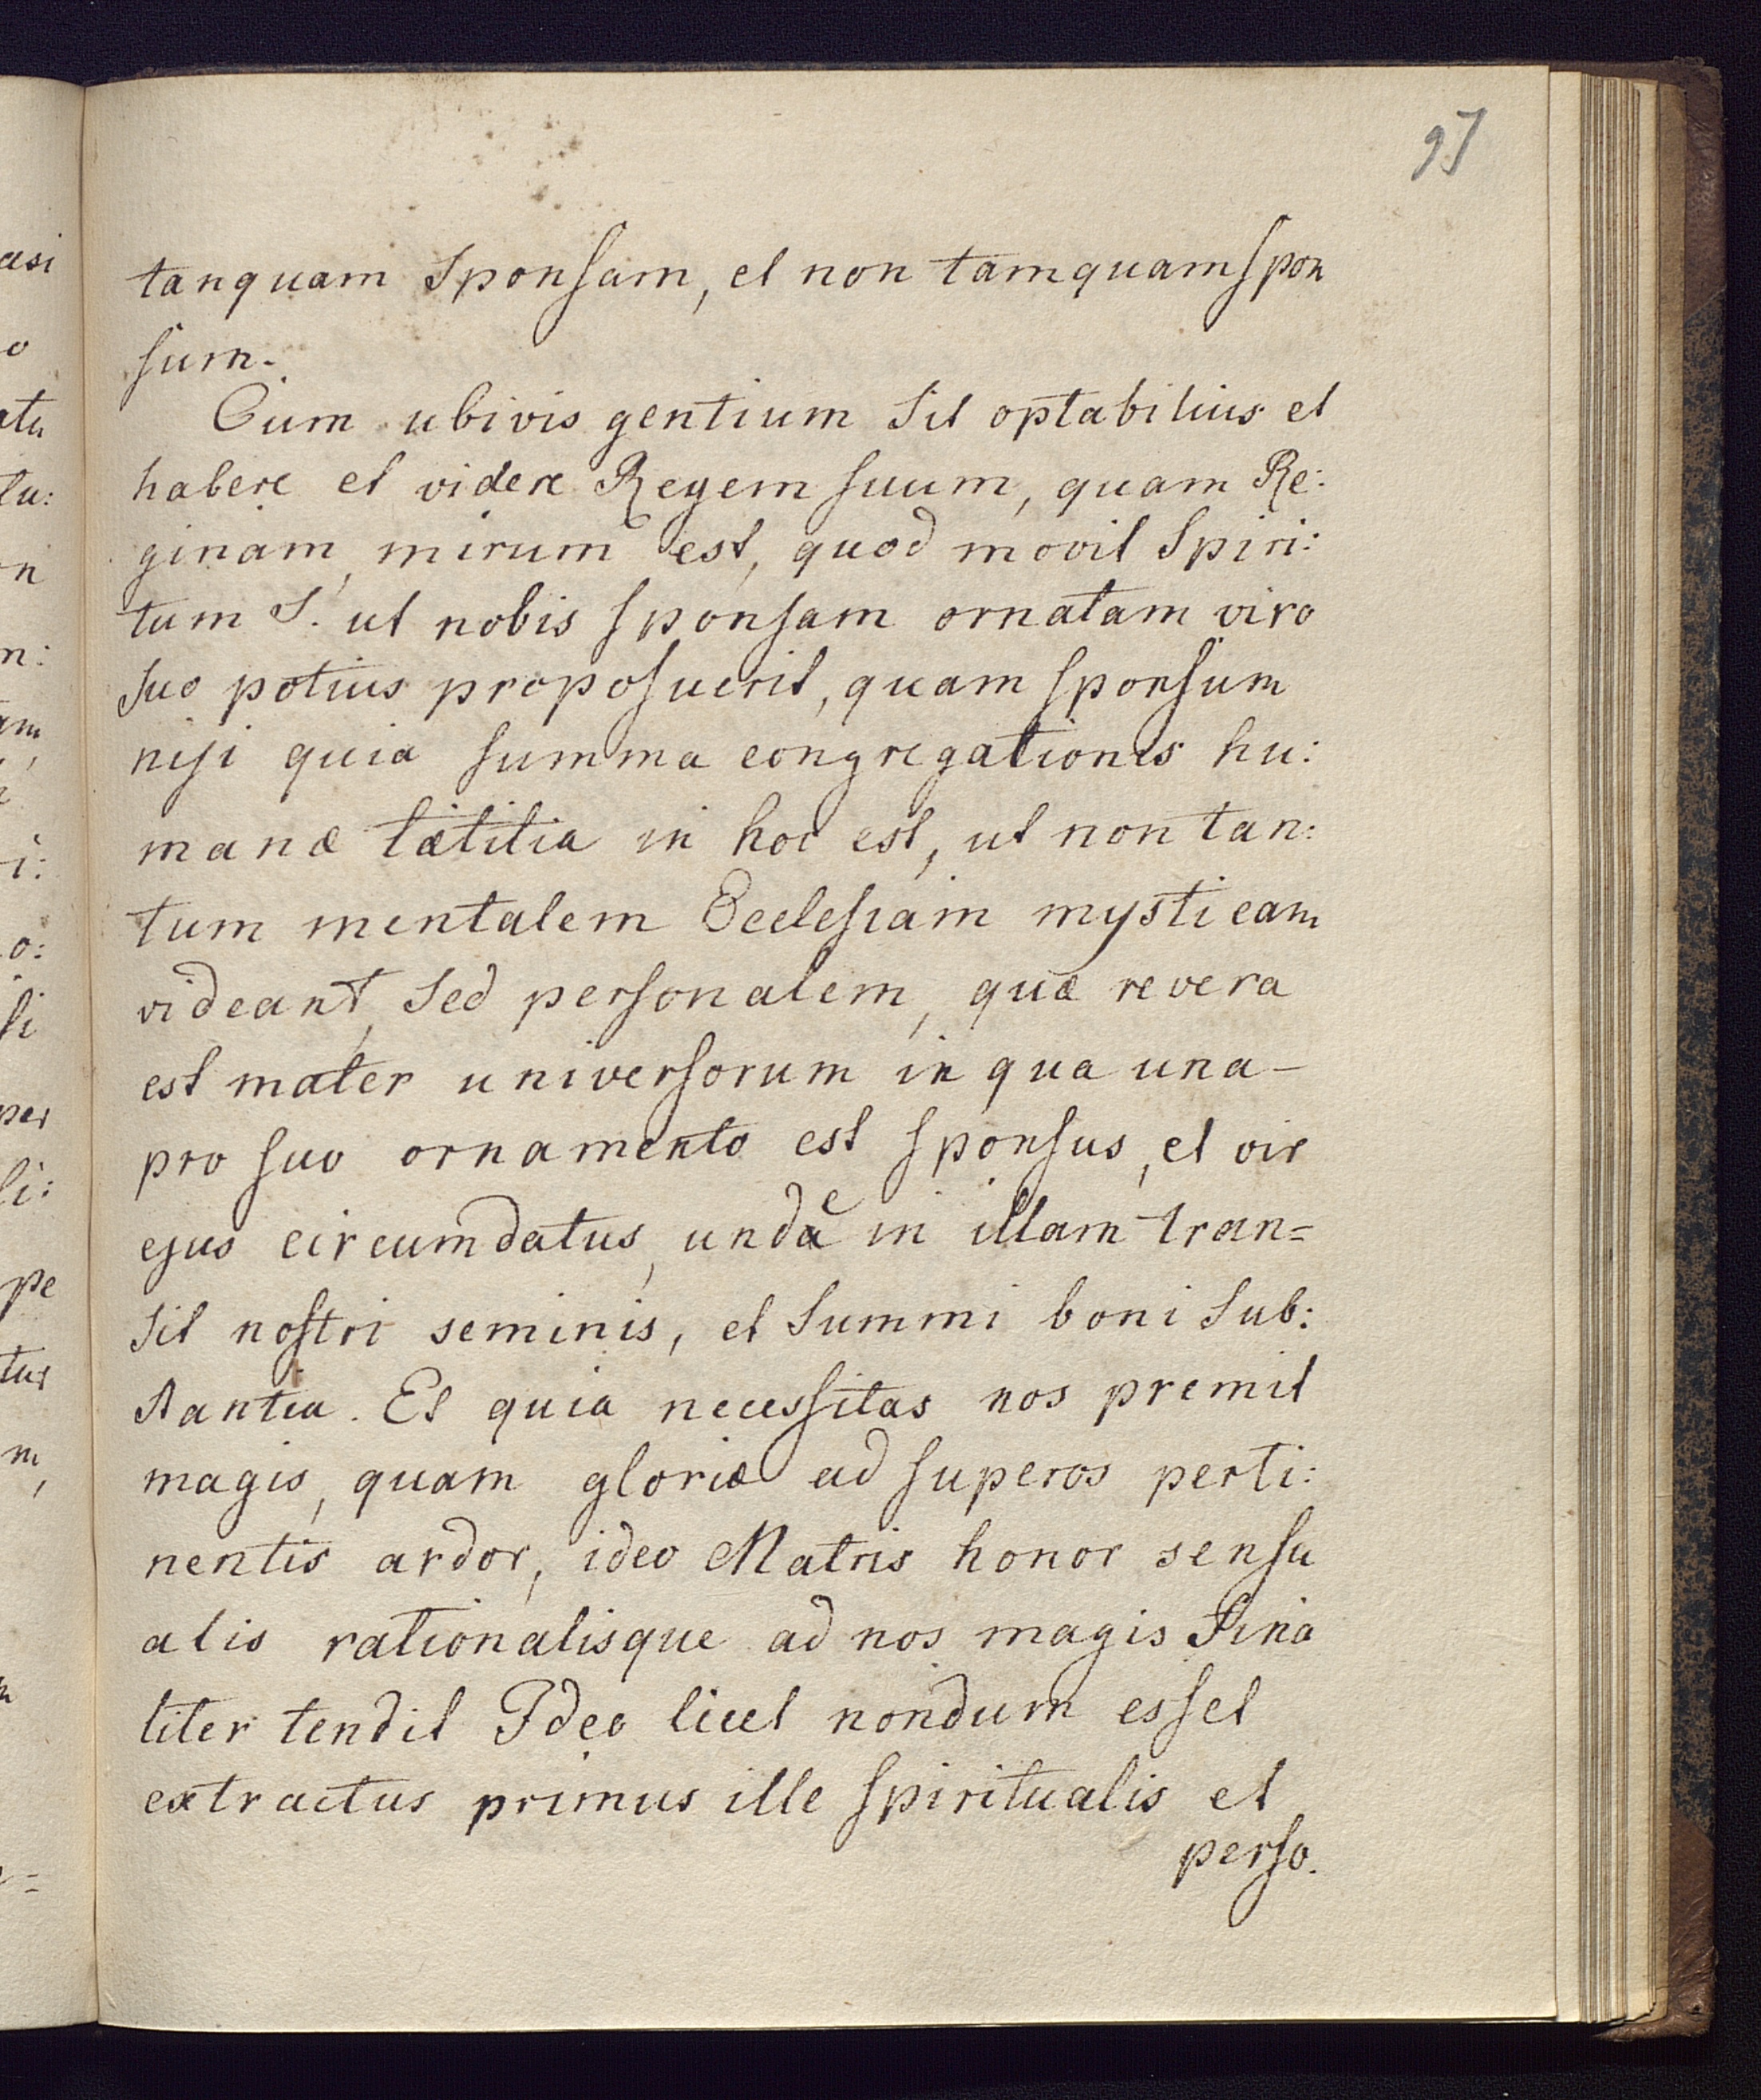 97
tanquam Sponsam, et non tamquam spon
sum.
Cum ubivis gentium sit optabilius et
habere et videre Regem suum, quam Re:
ginam, mirum est, quod movit Spiri:
tum S. ut nobis sponsam ornatam viro
suo potius proposuerit, quam sponsum
nisi quia summa congregationis hu:
manæ lætitia in hoc est, ut non tan:
tum mentalem Ecclesiam mysticam
videant, sed personalem, quæ revera
est mater universorum in qua una–
pro suo ornamento est sponsus, et vir
ejus circumdatus, unde in illam tran=
sit nostri seminis, et summi boni sub:
stantia. Et quia necessitas nos premit
magis, quam gloriæ ad superos perti:
nentis ardor, ideo Matris honor sensu
alis rationalisque ad nos magis fina
liter tendit Ideo licet nondum esset
extractus primus ille spiritualis et
perso.